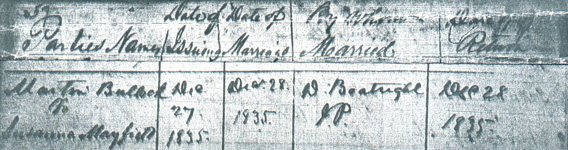 59
Parties Names
Date of Issuing
Date of Marriage
By Whom Married
Return
Martin Bullock
To
Susanna Mayfield
Dec
27
1835
Dec 28
1835
D. Boatright
J.P.
Dec 28
1835